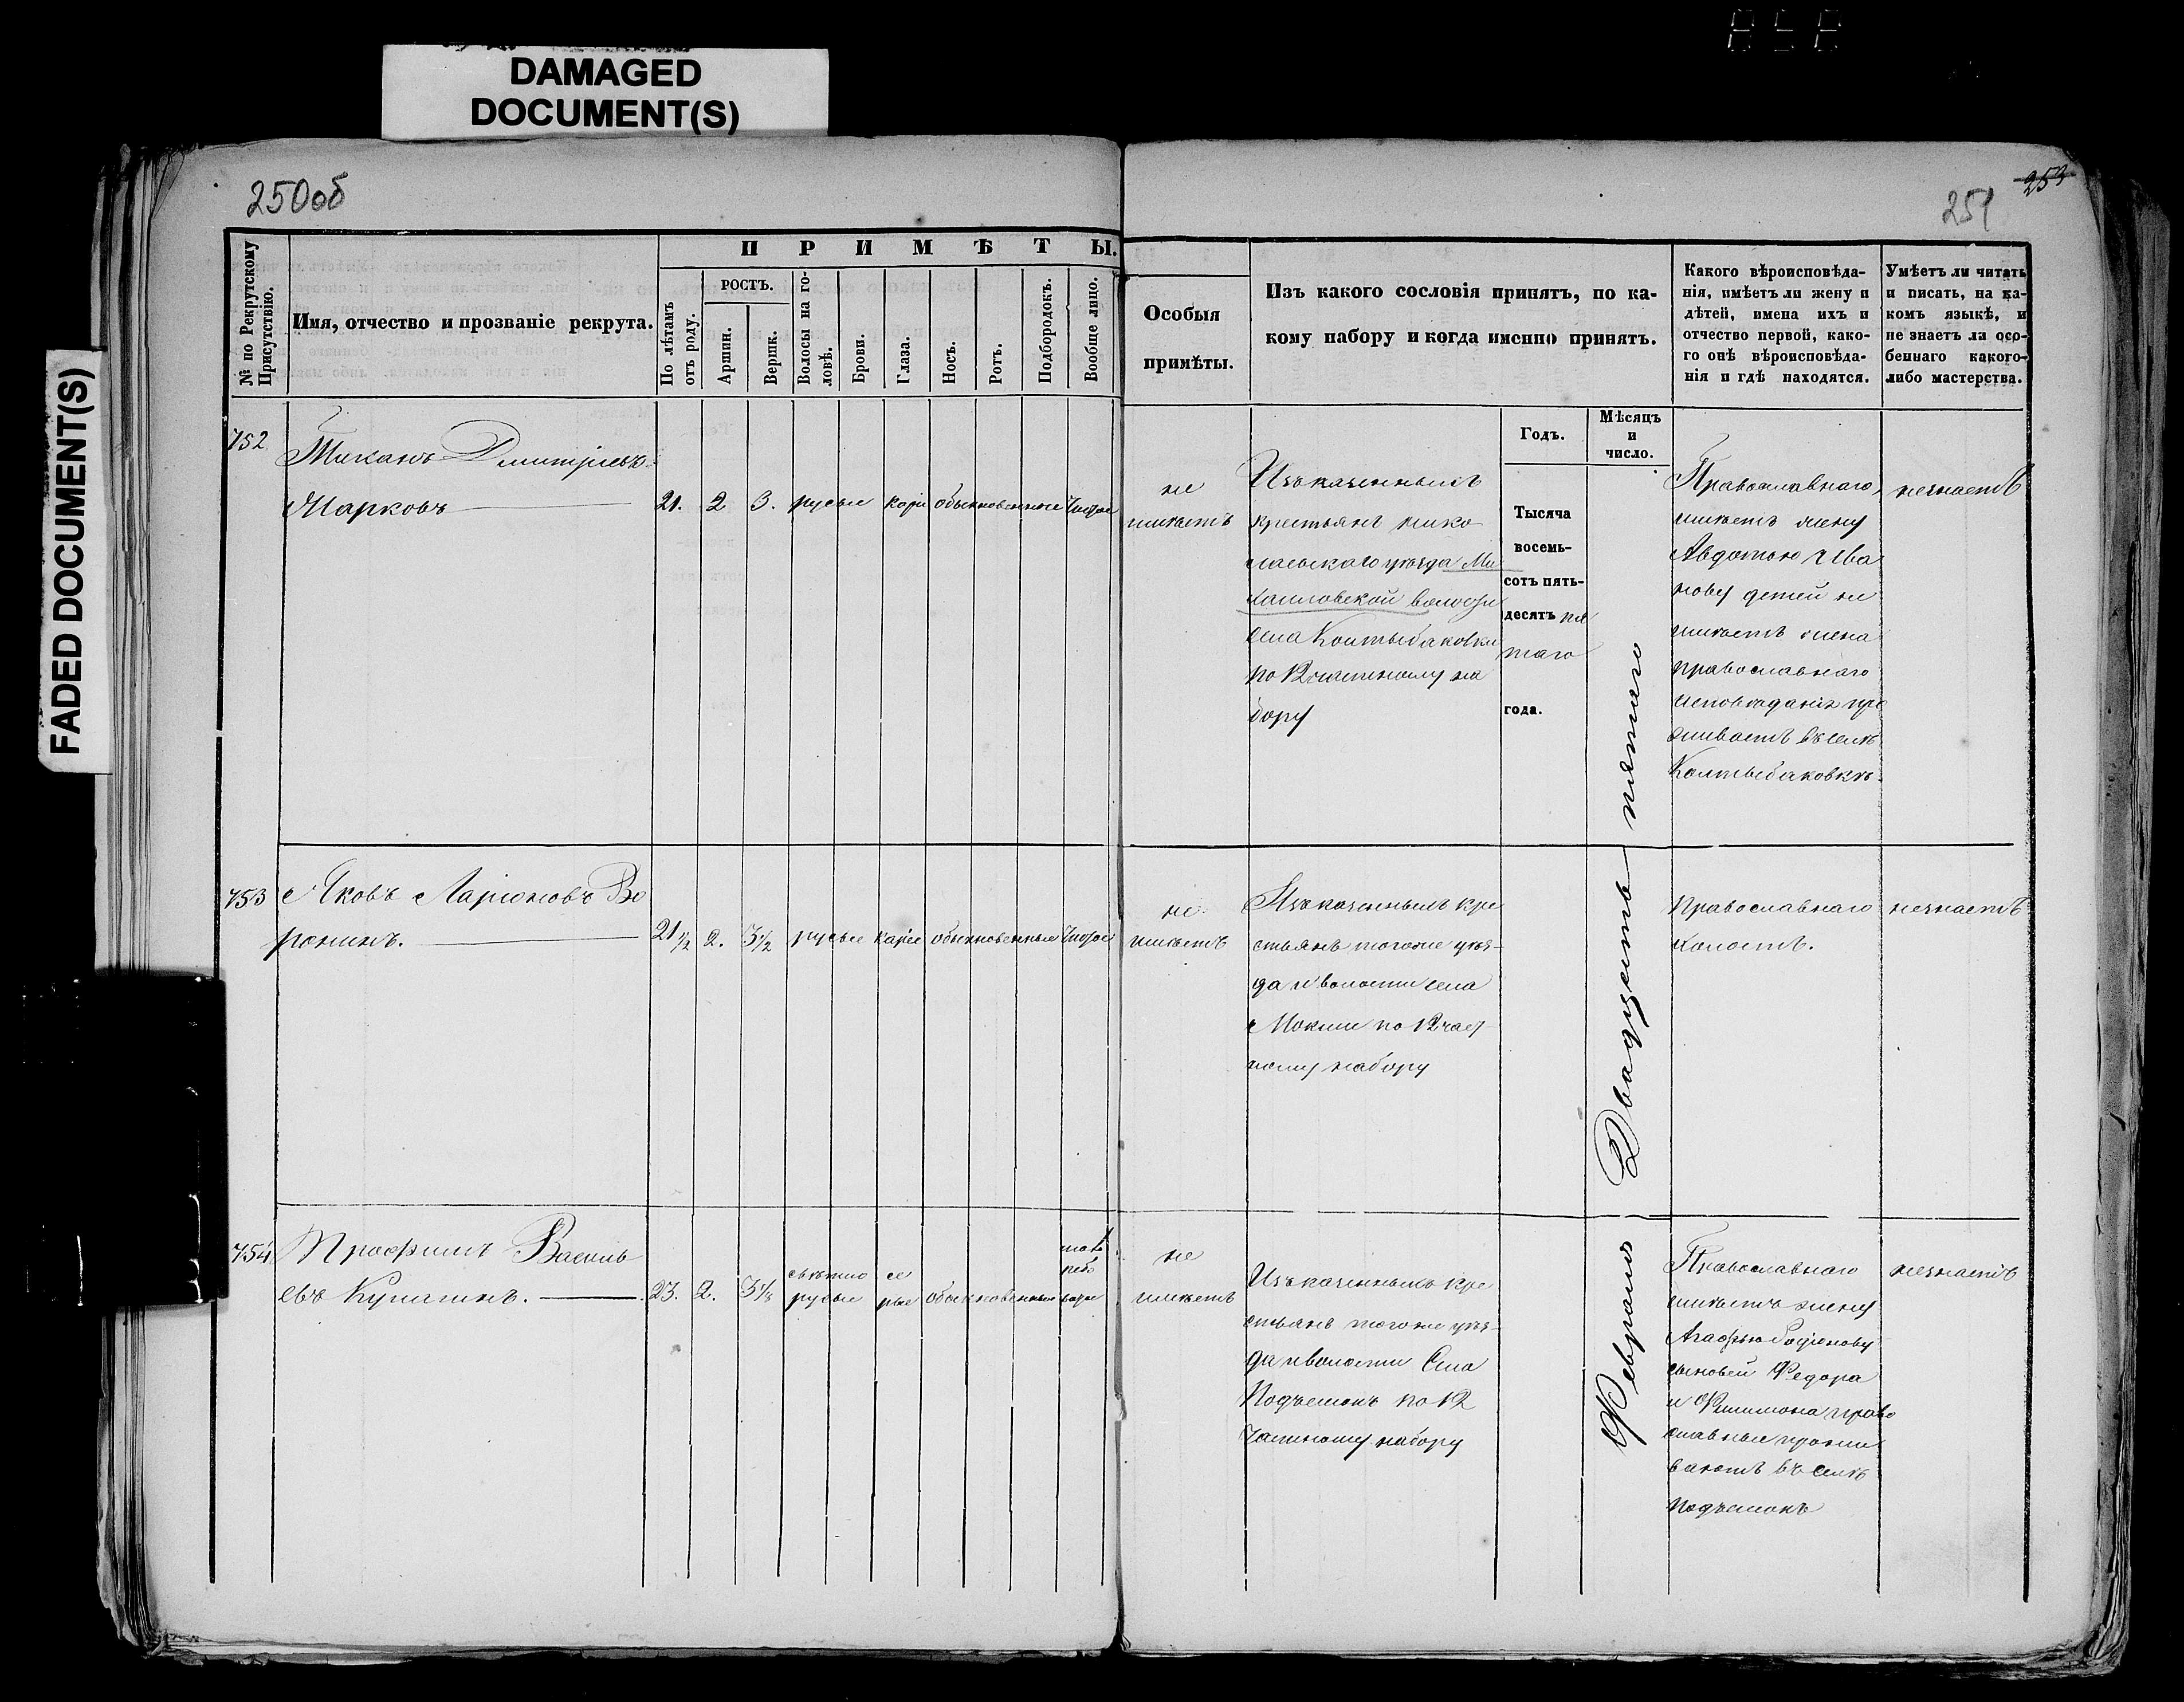 DAMAGED
DOCUMENT(S)
FADED DOCUMENT(S)
250об
251
253
№ по Рекрутскому
Присутствію.
Имя, отчество и прозваніе рекрута.
П Р И М Ѣ Т Ы.
По лѣтамъ
отъ роду.
РОСТЪ.
Аршин.
Вершк.
Волосы на го-
ловѣ.
Брови.
Глаза.
Носъ.
Ротъ.
Подбородокъ.
Вообще лицо.
Особыя
примѣты.
Изъ какого сословія принятъ, по ка-
кому набору и когда именно принятъ.
Годъ.
Мѣсяцъ
и
число.
Какого вѣроисповѣда-
нія, имѣетъ ли жену и
дѣтей, имена ихъ и
отчество первой, како-
го онѣ вѣроисповѣда-
нія и гдѣ находятся.
Умѣетъ ли читать
и писать, на ка-
комъ языкѣ, и
не знаетъ ли осо-
беннаго какого-
либо мастерства.
752
Тиханъ Дмитріевъ
Марковъ
21. 2 3. русые карі обыкновенные Чистое
не
имѣетъ
Изъ казенныхъ
крестьянъ нико
лаевскаго уѣзда Ми
хаиловской волости
села Колтыбаковки
по 12 частному на
бору
Тысяча
восемь-
сотъ пять-
десятъ пя
таго
года.
Февраля Двадцать пятаго
Православнаго,
имѣетъ жену
Авдотью Ива
нову детей не
имѣетъ жена
православнаго
исповѣданія про
живаетъ въ селѣ
Колтыбаковкѣ.
незнаетъ
753
Яковъ Ларіоновъ Во
ронинъ.
21 1/2 2. 3 1/2 русые каріе обыкновенные Чистое
не
имѣетъ
Изъ казенныхъ кре
стьянъ тогоже уѣз-
да и волости села
Мокши по 12 част
ному набору
Православнаго
холостъ.
незнаетъ
754
Профимъ Василь
евъ Кулагинъ.
23. 2. 3 1/8 свѣтло
русые
се
рые
обыкновенные
не
имѣетъ
Изъ казенныхъ кре
стьянъ тогоже уѣз-
да и волости Села
Подъемокъ по 12
Частному набору
Православнаго
имѣетъ жену
Агафью Родіонову
сыновей Федора
и Филимона право
славные прожи
ваютъ въ селѣ
Подъемокъ
незнаетъ